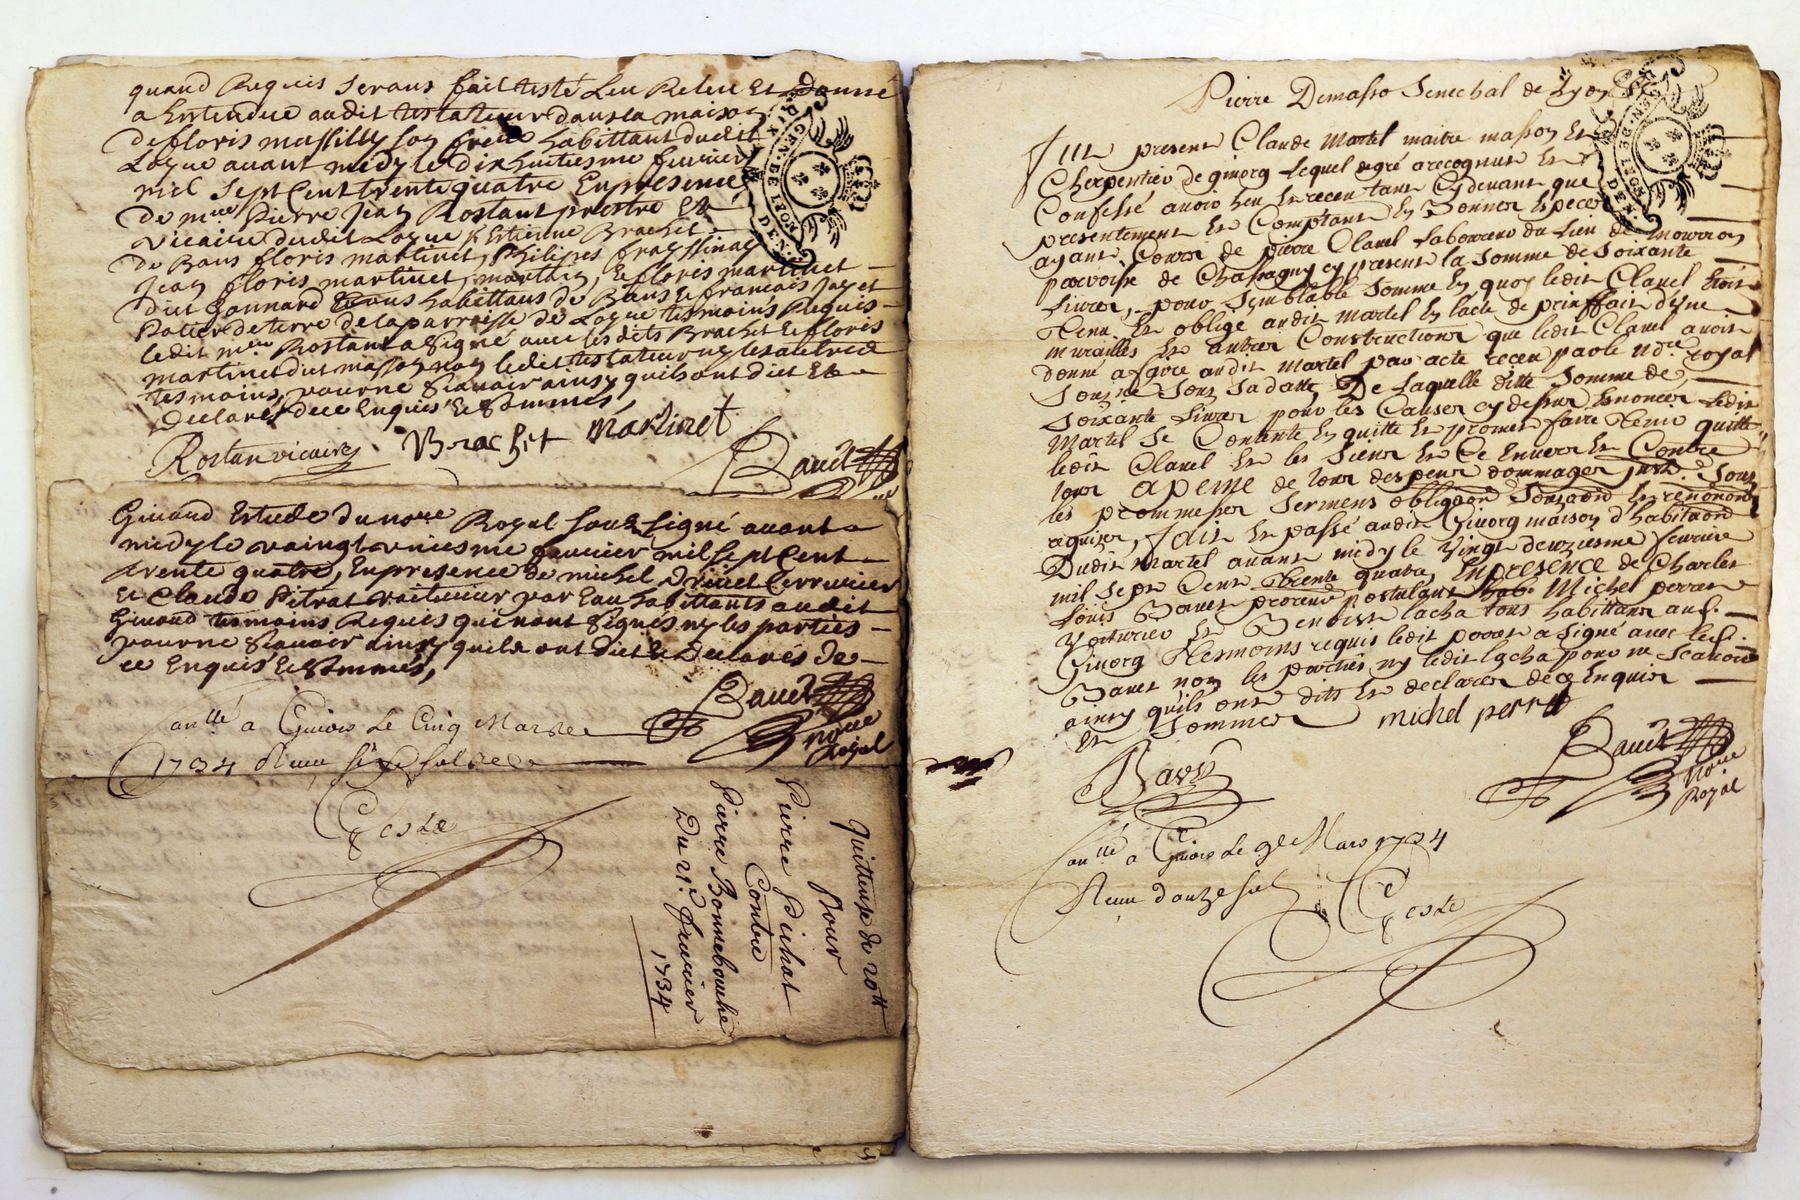 quand Requis serans fait testé Leu Releu Et Donné
a Entendue audit testateur dans la maison
de floris massilly son frere habittant dudit
Loyue auant midy le dix huitiesme feurier
mil Sept Cent trente quatre En presence
de mre Pierre Jean Rostant prestre Et
Vicaire dudit Loyue Estienne Brachet
de Bans floris martinet, Philipes
Jean floris martinet, Et floris martinet
dict Gonnard tous habittans de Bans Et francois
Potier de terre de la parroisse de Loyue tesmoins Requis
ledit mre Rostant a Signé auec lesdits Brachet Et floris
martinet dict masson non ledit testateur ny les autres
tesmoins, pour ne Scauoir ainsy quils ont dict Et
Declarés de ce Enquis Et Sommés,
Rostan vicaire Brachet martinet
Bauet
Giuord Estude du nore Royal Sousigné auant
midy le vaingt vniesme feurier mil Sept Cent
trente quatre, En presence de michel Drivet Serrurier
Et Claude Pitrat voiturier par Eau habittants audit
Giuord tesmoins Requis qui n'ont Signés ny les parties
pour ne Scauoir ainsy quils ont dict Et Declarés de
ce Enquis Et Sommés,
Bauet
nore
Royal
a Giuors Le Cinq Mars
1734 Receu
Geste
Quittense de 20tt
Pour
Pierre Pichat
Contre
Pierre Bonnebouche
Du 21e feurier
1734
Pierre Demasso Senechal de Lyon
GEN. DE LYON
DIX DEN.
Fut present Claude Martel maitre masson Et
Cherpentier de giuorg Lequel de gré a recognut Et
Confessé auoir heu Et receu tant Cydeuant que
presentement Et Comptant En Bonnes Especes
ayant Cours de pierre Clauel Laboureur du Lieu de mourron
paroisse de Chassagny cy present la Somme de Soixante
Liures, pour Semblable Somme En quoy ledit Clauel Etoit
Tenu Et obligé audit Martel En lacte de prixffait d'une
murailles Et autres Constructions que ledit Clauel auoit
donné a faire audit Martel par acte receu par le nore royal
Sousné Sous Sa datte, De laquelle ditte Somme de
Soixante Liures pour les Causes cy dessus Enoncer ledit
Martel Se Contente En quitte Et promet faire Tenir quitte
ledit Clauel Et les Siens Et Ce Enuers Et Contre
tous a peine de tous despens dommages
les promesses Sermens obligaon Soumaon Et renonon
requises, fait Et passé audit Giuorg maison d'habitaon
Dudit Martel auant midy le Vingt deuxiesme feurier
mil Sept Cent trente quatre, En presence de Charles
Louis Bauet procureur postulant Michel perret
Voiturier Et Benoist lacha tous habittans aud.
Giuorg Tesmoins requis ledit perret a Signé auec led.
Bauet non les parties ny ledit lacha pour ne Scauoir
ainsy quils ont dits Et declares de ce Enquis
Et Sommes michel perret
Bauet
Bauet
Nore
Royal
a Giuors Le 9e Mars 1734
Receu douze sols
Geste